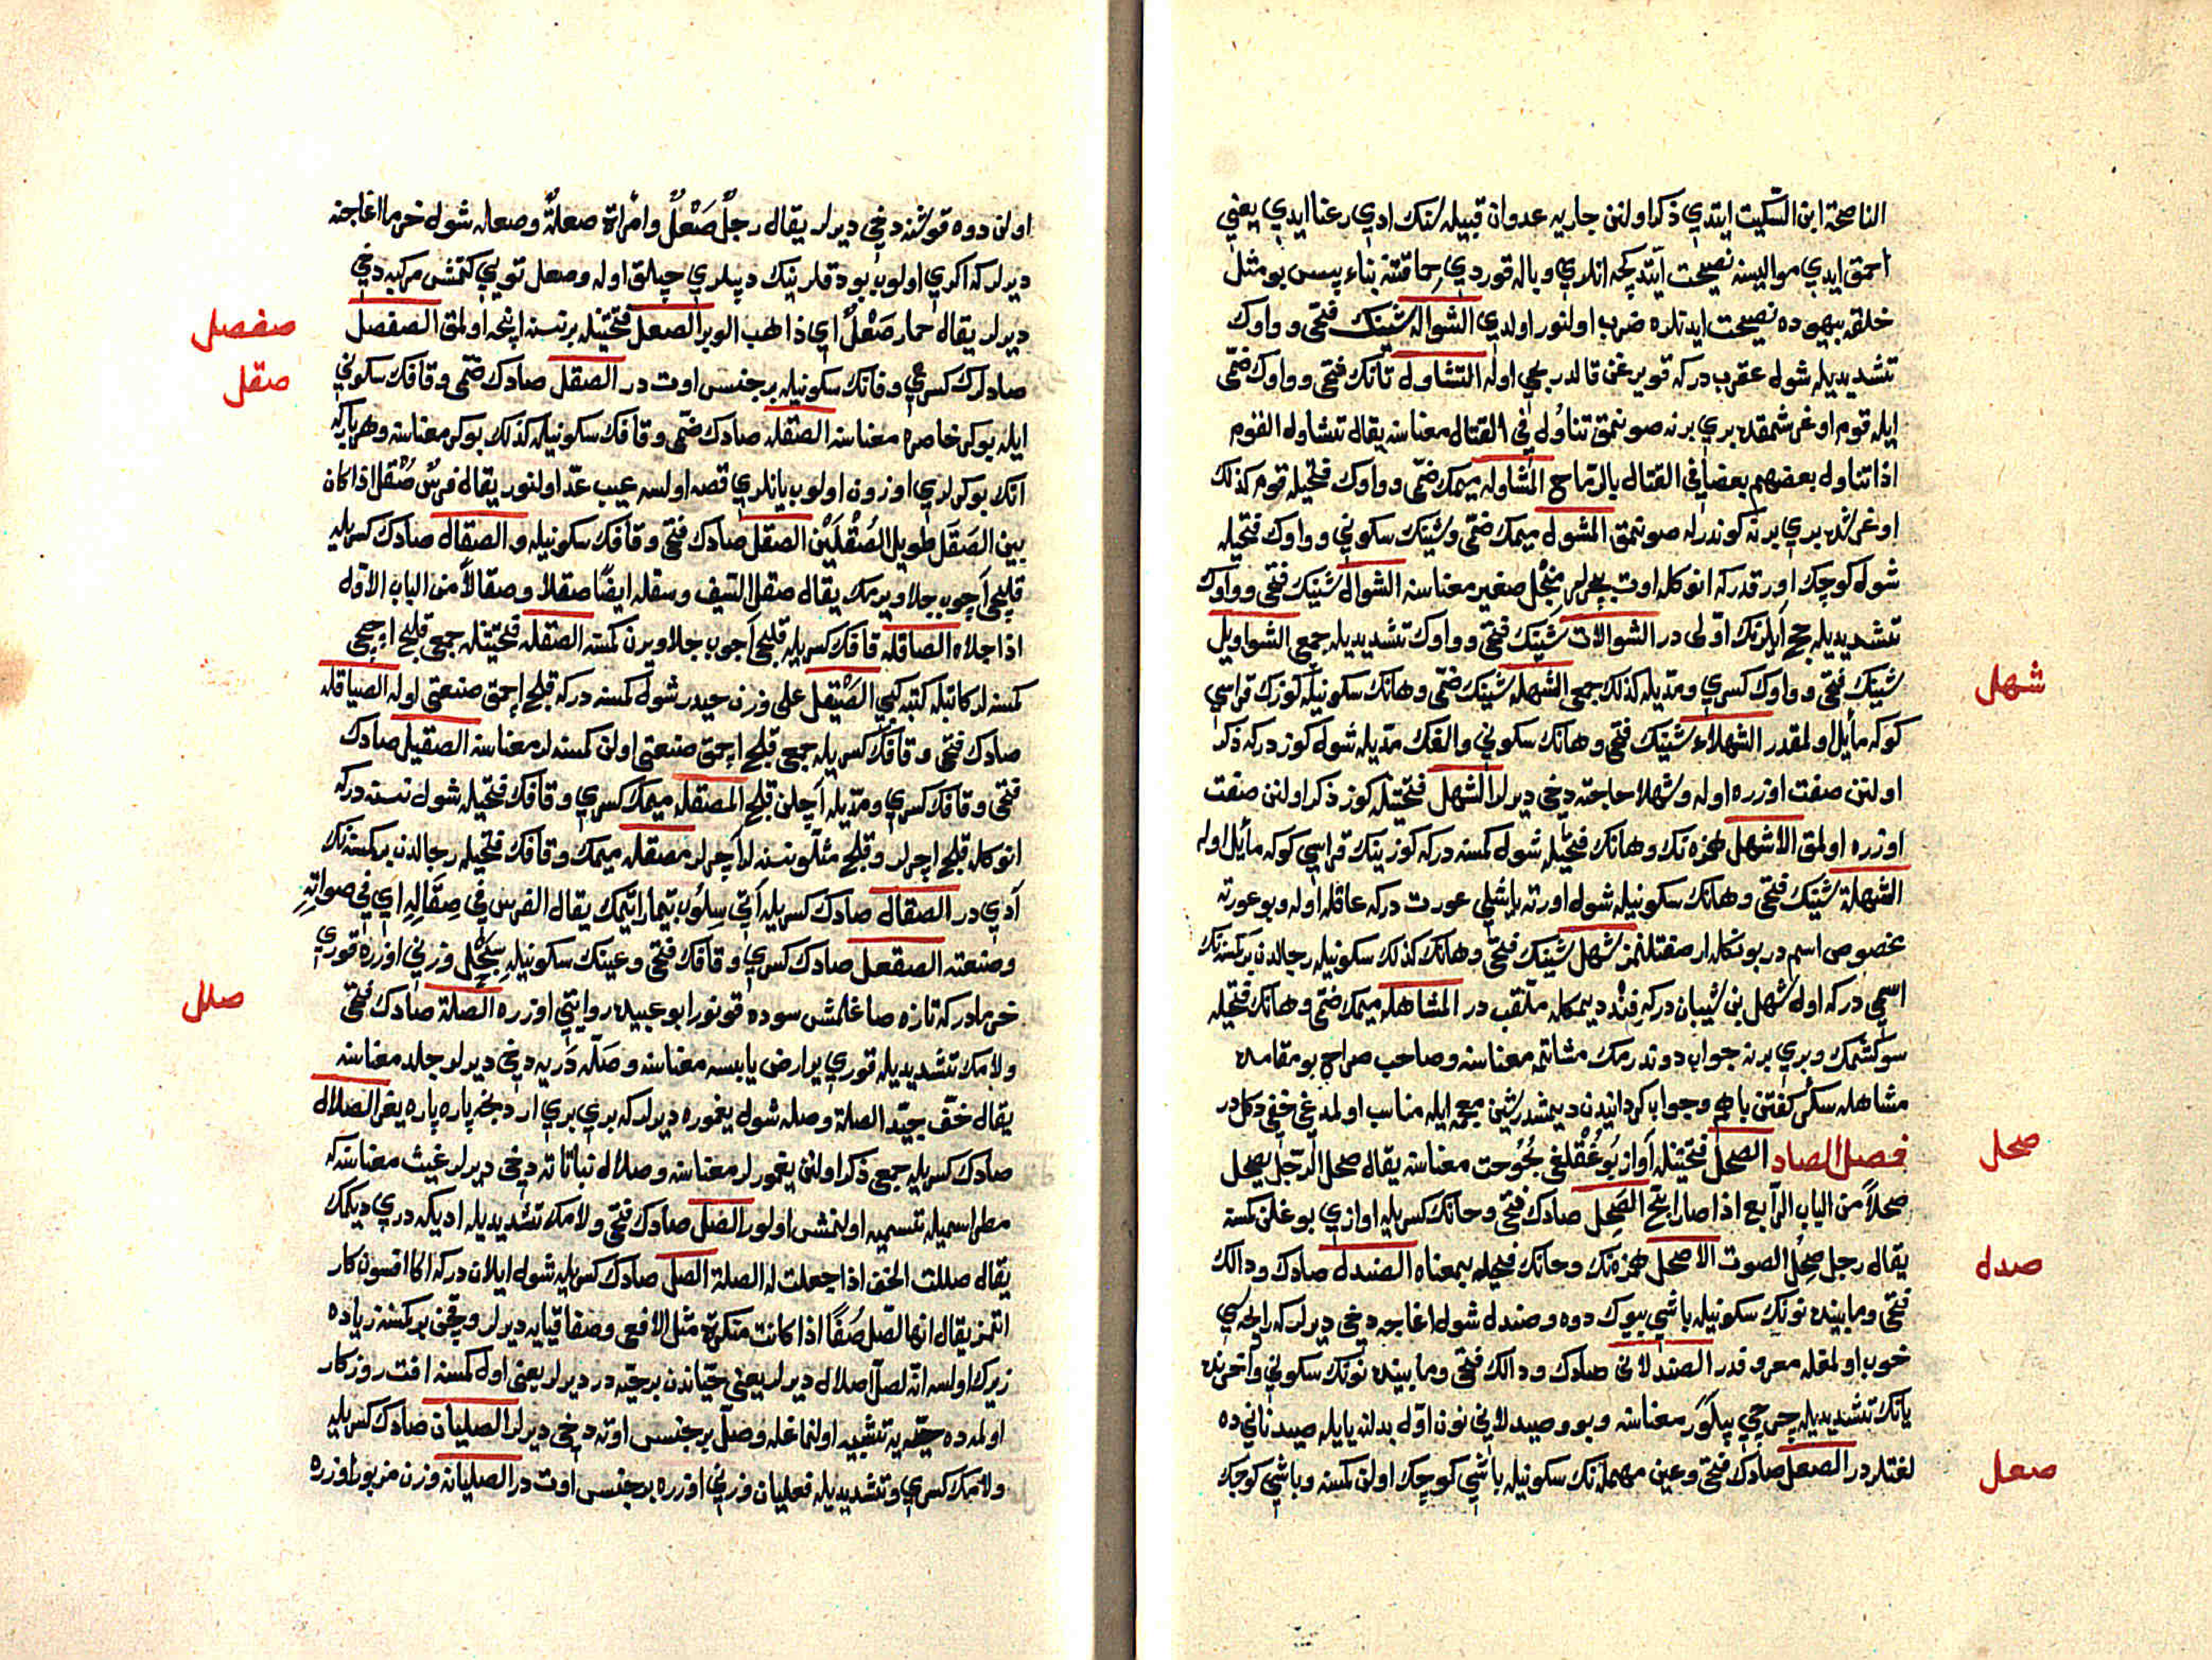 الناصحة ابن السكيت ايتدي ذكر اولنن جاريه عدوان قبيله سنك ادي رعنا ايدي يعني
احمق ايدي مواليسنه نصيحت ايتدكجه انلري وباله قوردي حماقتنه بناء پس بو مثل
خلقه بيهوده نصيحت ايدنلره ضرب اولنور اولدي الشواله شينك فتحي و واوك
تشديديله شول عقرب دركه قويرغن قالدريجي اوله التشاول تانك فتحي و واوك ضمي
ايله قوم اوغرشمقده بري برنه صونمق تناول في القتال معناسنه يقال تشاول القوم
اذا تناول بعضهم بعضا في القتال بالرماح المشاوله ميمك ضمي و واوك فتحيله قوم كذلك
اوغرشده بري برنه كوندرله صونمق المشول ميمك ضمي و شينك سكوني و واوك فتحيله
شول كوچك اورقدركه انوكله اوت بچرلر منجل صغير معناسنه الشوال شينك فتحي و واوك
تشديديله حج ايلرنك اولى در الشوالات شينك فتحي و واوك تشديديله جمعي الشواويل
شينك فتحي و واوك كسري و مديله كذلك جمعي الشهله شينك ضمي و هانك سكونيله كوزك قراسي
كوكه مائل اولمقدر الشهلاء شينك فتحي و هانك سكوني والفك مديله شول كوزدركه ذكر
اولنن صفت اوزره اوله و شهلا حاجته دخي ديرلر الشهل فتحتيله كوز ذكر اولنن صفت
اوزره اولمق الاشهل همزه نك و هانك فتحيله شول كمسنه دركه كوزينك قراسي كوكه مائل اوله
الشهلة شينك فتحي و هانك سكونيله شول اورته ياشلي عورت دركه عاقله اوله و بو عورته
مخصوص اسم در بونكله ار صفتلنمز شهل شينك فتحي و هانك كذلك سكونيله رجالدن بر كمسنه نك
اسمي دركه اول شهل بن شيبان دركه فند ديمكله ملقب در المشاهله ميمك ضمي و هانك فتحيله
سوكشمك و بري برنه جواب دوندرمك مشاتمه معناسنه و صاحب صراح بو مقامده
مشاهله سكر كفتن باهم و جواب كردانيدن ديمشدر شين معجمه ايله مناسب اولمدغي خفي دكلدر
فصل الصاد الصحل فتحتيله آواز بوغقلغي بحوحت معناسنه يقال صحل الرجل يصحل
صحلاً من الباب الرابع اذا صار ابح الصحل صادك فتحي و حانك كسريله اوازي بوغلن كمسنه
يقال رجل صحل الصوت الاصحل همزه نك و حانك فتحيله بمعناه الصندل صادك و دالك
فتحي و مابينده نونك سكونيله باشي بيوك دوه و صندل شول اغاجه دخي ديرلركه رايحه سي
خوب اولمقله معروفدر الصندلاني صادك و دالك فتحي و مابينده نونك سكوني و آخرنده
يانك تشديديله چرچي پيله ور معناسنه و بو و صيدلاني نون اول بدلنه يايله صيدناني ده
لغتلردر الصعل صادك فتحي و عين مهمله نك سكونيله باشي كوچك اولن كمسنه و باشي كوچك
شهل
صحل
صدل
صعل
اولن دوه قوشنه دخي ديرلر يقال رجلٌ صَعْلٌ وامراة صعلةٌ و صعله شول خرما اغاجنه
ديرلركه اكري اولوب بوداقلرينك ديبلري چپلاق اوله و صعل تويي كتمش مركبه دخي
ديرلر يقال حمار صَعْلٌ اي ذاهب الوبر الصعل فتحتيله برنسنه اينجه اولمق الصفصل
صادلرك كسري و فانك سكونيله بر جنس اوت در الصقل صادك ضمي و قافك سكوني
ايله بوكر خاصره معناسنه الصقله صادك ضمي و قافك سكونيله كذلك بوكر معناسنه و هر بار كه
آتك بوكرلري اوزون اولوب يانلري قصه اولسه عيب عد اولنور يقال فرسٌ صُقل اذا كان
بين الصَقَل طويل الصُقْلَيْن الصقل صادك فتحي و قافك سكونيله و الصقال صادك كسريله
قليجي آچوب جلا ويرمك يقال صقل السيف و سقله ايضًا صقلا و صقالاً من الباب الاول
اذا جلاه الصاقله قافك كسريله قليجي آچوب جلا ويرن كمسنه الصقله فتحتيله جمعي قليج اچيجي
كمسنه لر كاتبله كتبه كبي الصَيْقل على وزن حيدر شول كمسنه دركه قليج اچمق صنعتي اوله الصياقله
صادك فتحي و قافك كسريله جمعي قليج اچمق صنعتي اولن كمسنه لر معناسنه الصقيل صادك
فتحي و قافك كسري و مديله آچلن قليج المصقله ميمك كسري و قافك فتحيله شول نسنه دركه
انوكله قليج اچرلر و قليج مثللو نسنه لر آچرلر مصقله ميمك و قافك فتحيله رجالدن بر كمسنه نك
آدي در الصقال صادك كسريله آتي سلوب تيمار ايتمك يقال الفرس في صِقَالِهِ اي في صوانهِ
و صنعته الصقعل صادك كسري و قافك فتحي و عينك سكونيله سِبَحْل وزني اوزره قوري
خرمادركه تازه صاغلمش سوده قونور ابو عبيده روايتي اوزره الصلة صادك فتحي
و لامك تشديديله قوري ير ارض يابسه معناسنه و صله دريه دخي ديرلر جلد معناسنه
يقال خف جيد الصلة و صله شول يغموره ديرلركه بري بري اردنجه پاره پاره يغر الصلال
صادك كسريله جمعي ذكر اولنن يغمورلر معناسنه و صلال نباتاته دخي ديرلر غيث معناسنه كه
مطر اسميله تسميه اولنمشي اولور الصل صادك فتحي و لامك تشديديله اديكه دري ديكمك
يقال صللت الخف اذا جعلت له الصلة الصل صادك كسريله شول ايلان دركه اكا افسون كار
اتمز يقال انها لصل صُفًا اذا كانت منكرة مثل الافعى و صفا قيايه ديرلر و قچن بر كمسنه زياده
زيرك اولسه انه لصل اصلال ديرلر يعني حياندن بر حيه در ديرلر يعني اول كمسنه افت روزكار
اولمده حيه يه تشبيه اولنماغله و صل بر جنس اوته دخي ديرلر الصليان صادك كسريله
و لامك كسري و تشديديله فعليان وزني اوزره بر جنس اوت در الصليانه وزن مزبور اوزره
صفصل
صقل
صلل